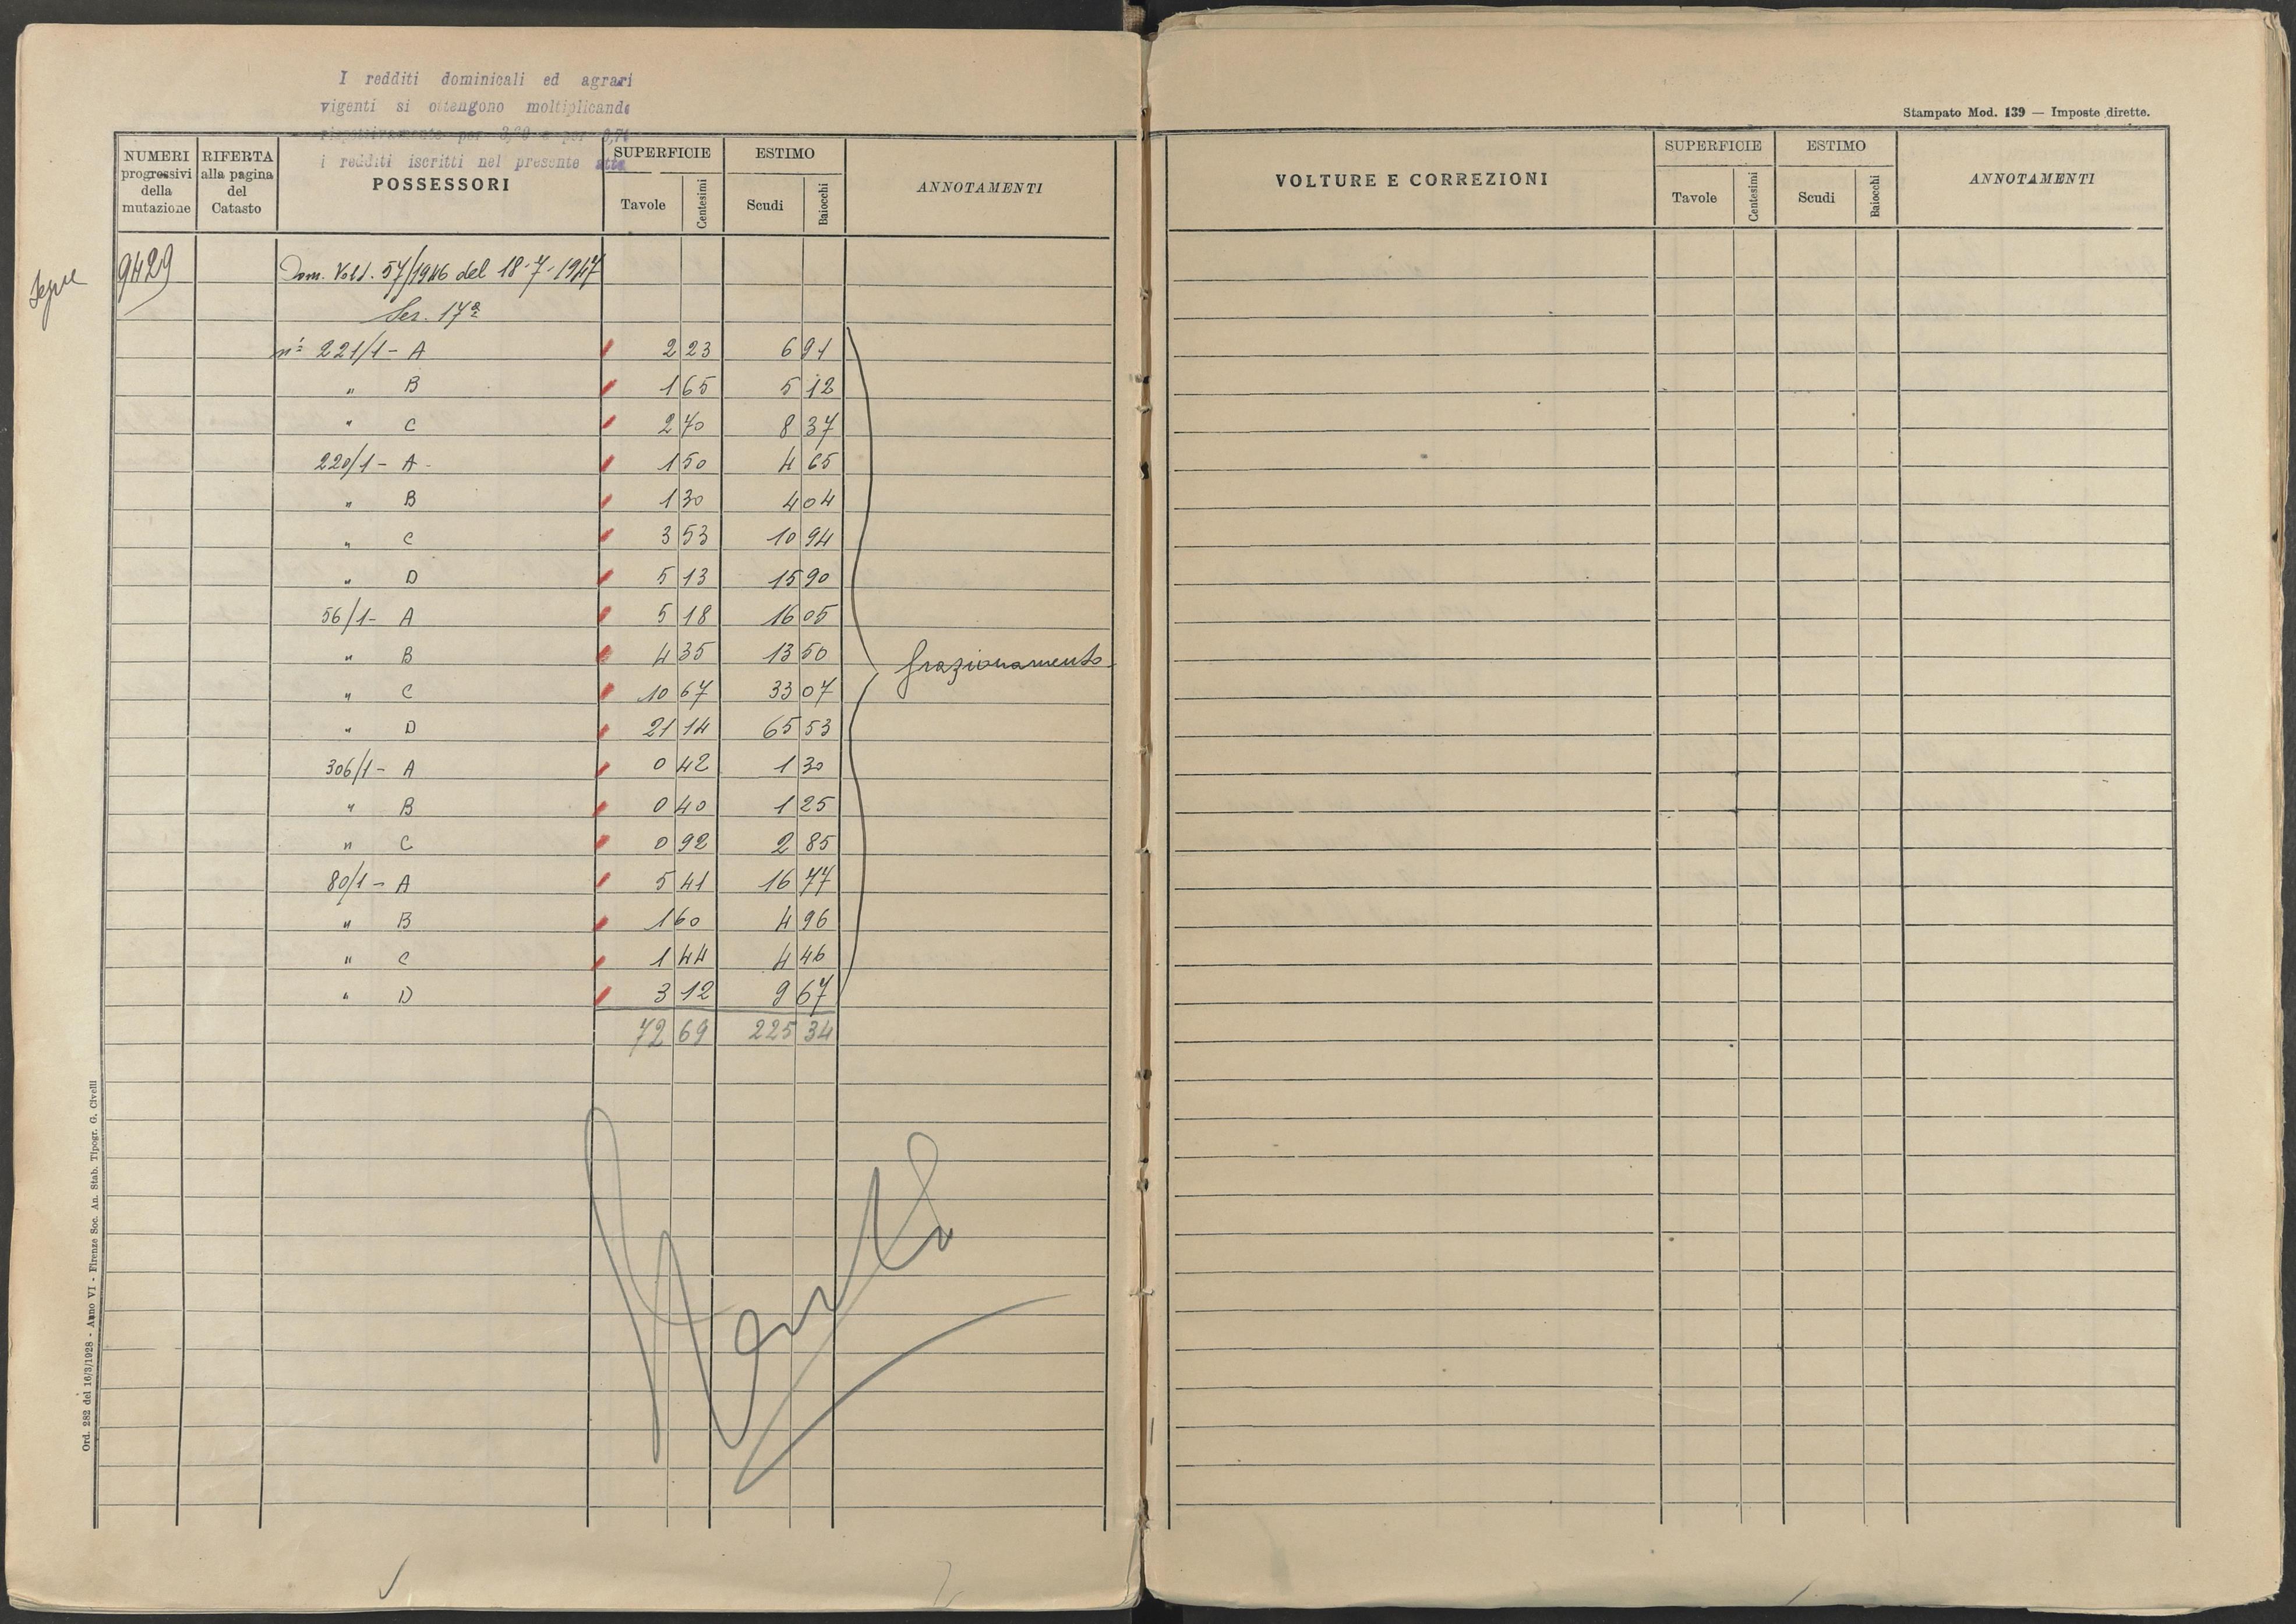 I redditi dominicali ed agrari
vigenti si ottengono moltiplicando
rispettivamente per 3,20 e per
i redditi iscritti nel presente atto
NUMERI progressivi della mutazione
RIFERTA alla pagina del Catasto
POSSESSORI
SUPERFICIE
Tavole
Centesimi
ESTIMO
Scudi
Baiocchi
ANNOTAMENTI
Segue
9429 Dom. Volt. 57/1946 del 18-7-1947
Ser. 17ª
nⁱ 221/1 - A 2 23 6 91
" B 1 65 5 12
" C 2 70 8 37
220/1 - A - 1 50 4 65
" B 1 30 4 04
" C 3 53 10 94
" D 5 13 15 90
56/1 - A 5 18 16 05
" B 4 35 13 50
frazionamento
" C 10 67 33 07
" D 21 14 65 53
306/1 - A 0 42 1 30
" B 0 40 1 25
" C 0 92 2 85
80/1 - A 5 41 16 77
" B 1 60 4 96
" C 1 44 4 46
" D 3 12 9 67
72 69 225 34
Ord. 282 del 16/3/1928 - Anno VI - Firenze Soc. An. Stab. Tipogr. G. Civelli
Stampato Mod. 139 — Imposte dirette.
VOLTURE E CORREZIONI
SUPERFICIE
Tavole
Centesimi
ESTIMO
Scudi
Baiocchi
ANNOTAMENTI